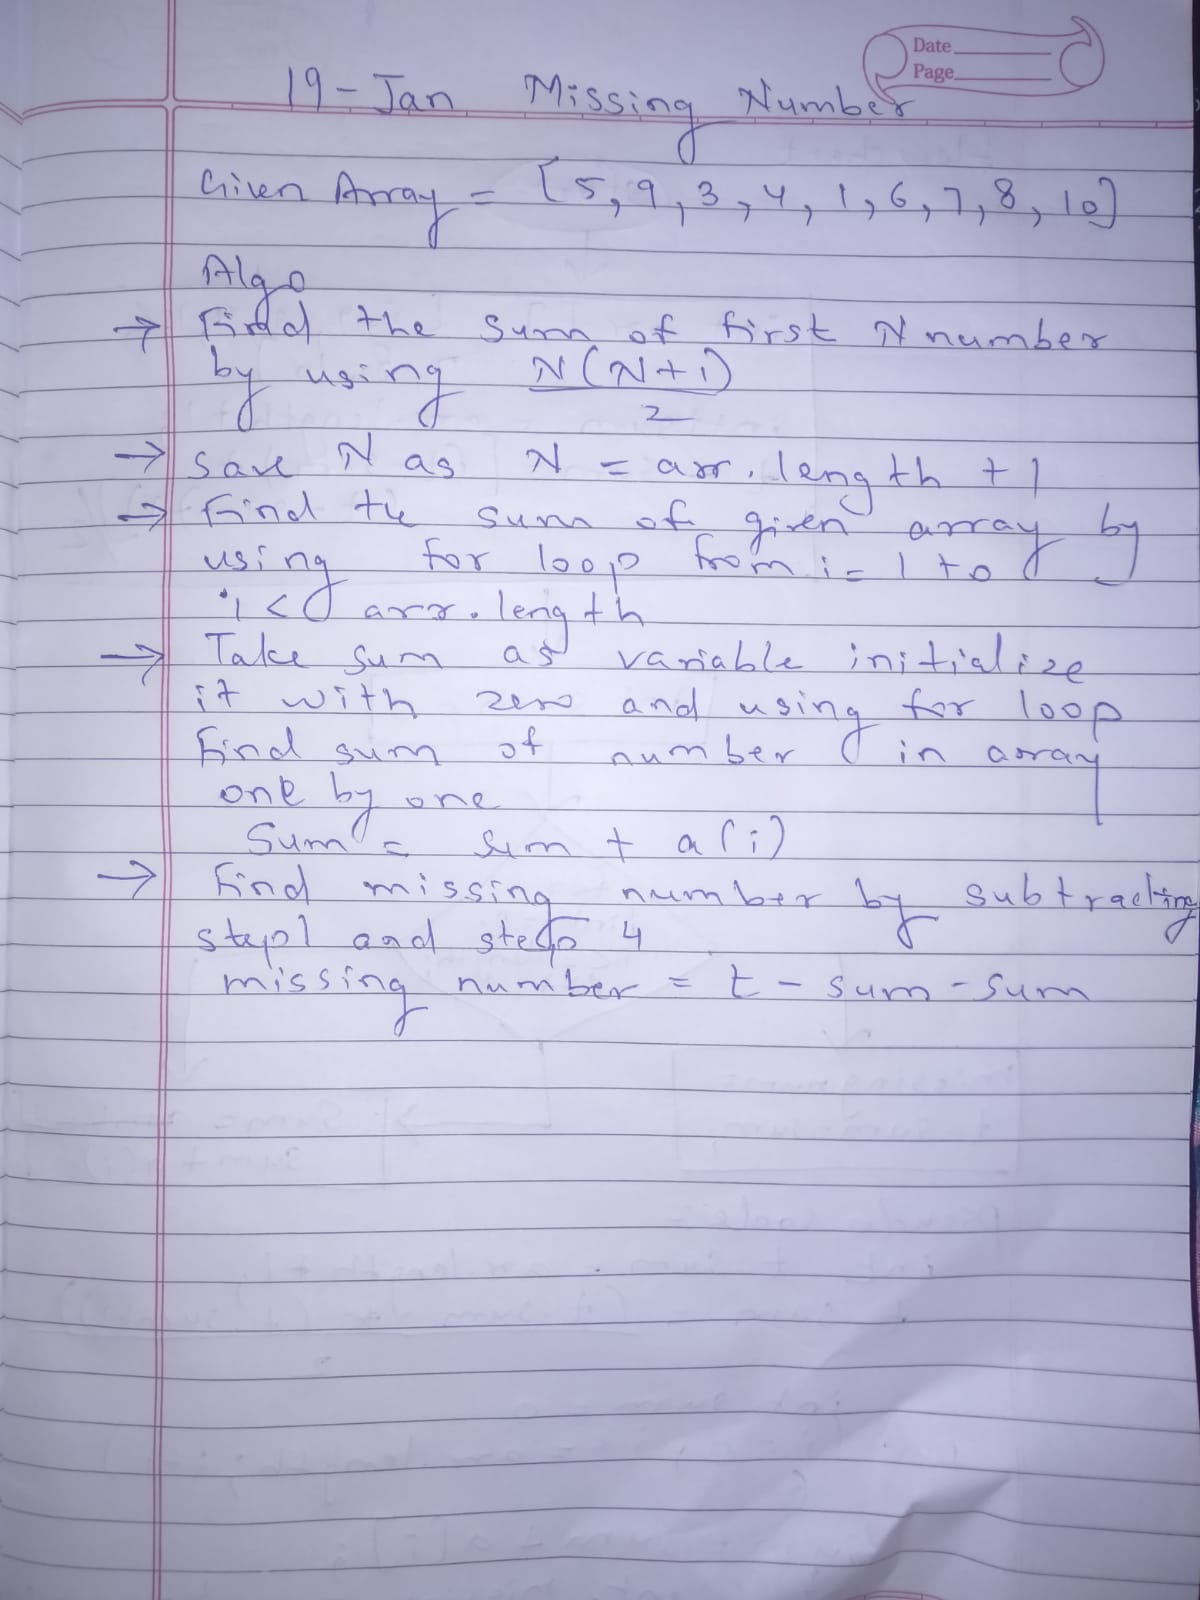 Date
Page
19-Jan Missing Number
Given Array = [5, 9, 3, 4, 1, 6, 7, 8, 10]
Algo
→ Find the sum of first N number
by using N(N+1)
2
→ Save N as N = arr.length +1
→ Find the sum of given array by
using for loop from i= 1 to
i< arr.length
→ Take sum as variable initialize
it with zero and using for loop
Find sum of number in array
one by one
Sum = sum + a(i)
→ Find missing number by subtracting
step1 and step 4
missing number = t - sum - sum